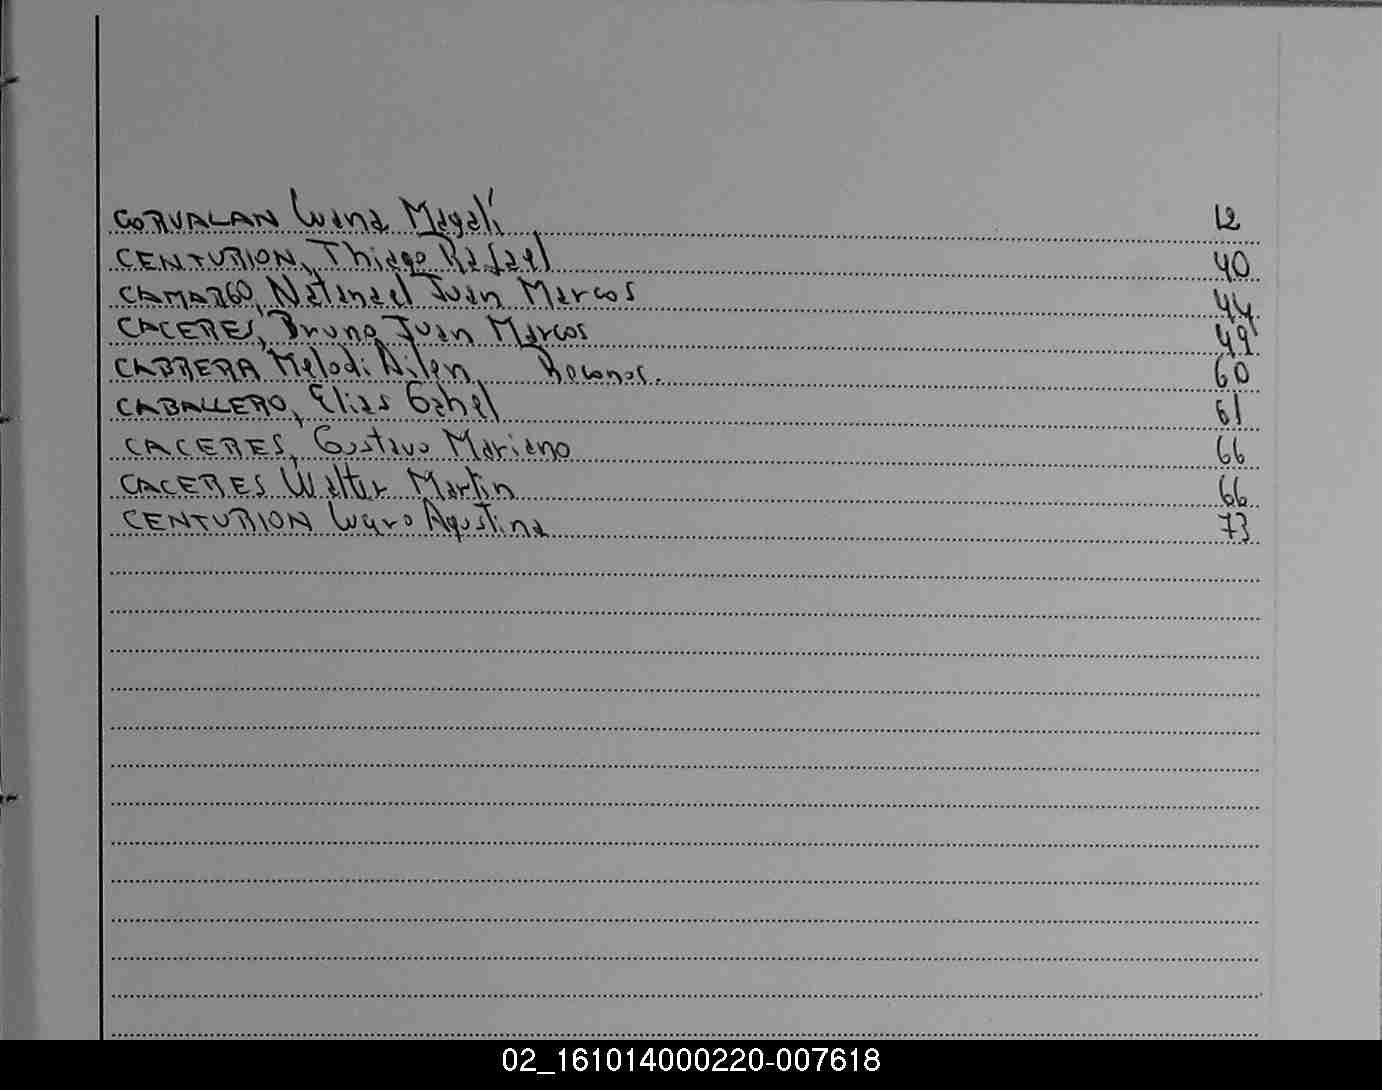 CORVALAN Luana Magalí 12
CENTURION, Thiago Rafael 40
CAMARGO, Natanael Juan Marcos 44
CACERES, Bruno Juan Marcos 49
CABRERA Melodi Ailen Reconoc. 60
CABALLERO, Elias Gahel 61
CACERES, Gustavo Mariano 66
CACERES Walter Martin 66
CENTURION Agustina 73
02_161014000220-007618